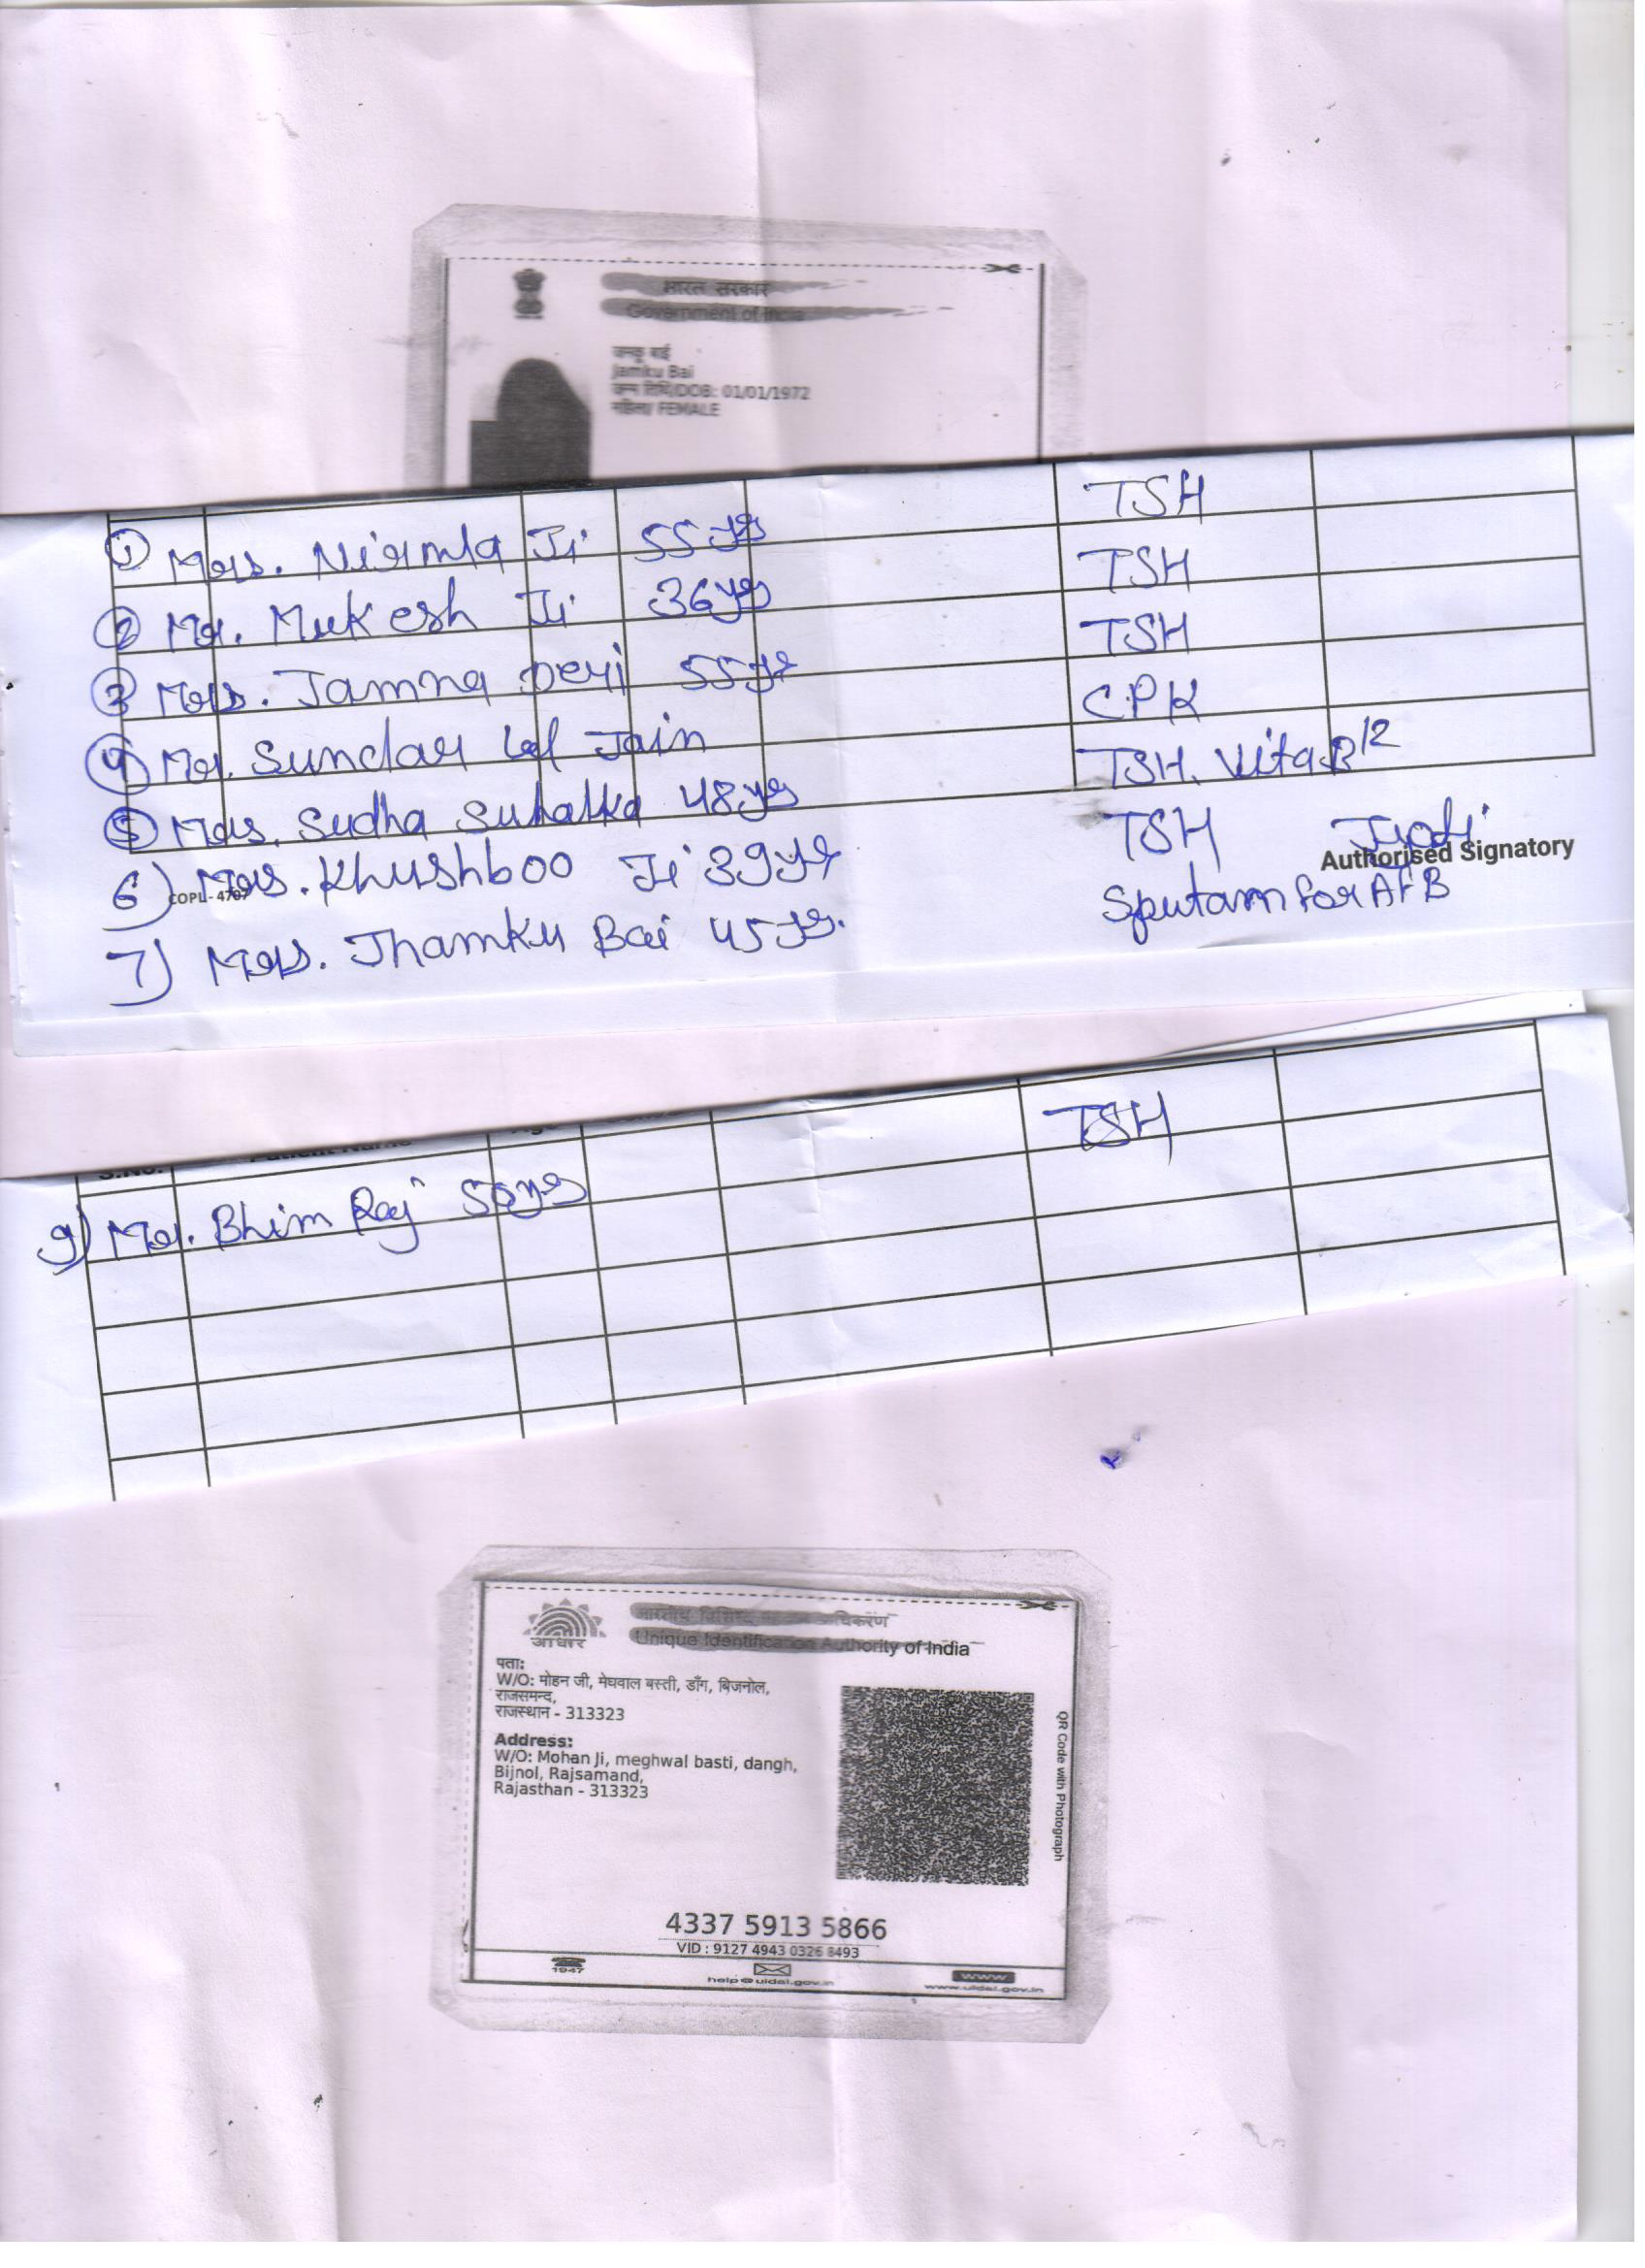 भारत सरकार
Government of India
जमकू बाई
Jamku Bai
जन्म तिथि/DOB: 01/01/1972
महिला/ FEMALE
① Mrs. Nirmla Ji 55 yrs TSH
② Mr. Mukesh Ji 36 yrs TSH
③ Mrs. Jamna Devi 55 yr TSH
④ Mr. Sundar Lal Jain CPK
⑤ Mrs. Sudha Suhalka 48 yrs TSH, Vita B12
6) Mrs. Khushboo Ji 39 yr TSH
Authorised Signatory
COPL- 4707
7) Mrs. Jhamku Bai 45 yrs. Sputam for AFB
S.No. Patient Name
9) Mr. Bhim Raj 50 yrs TSH
आधार
Unique Identification Authority of India
पता:
W/O: मोहन जी, मेघवाल बस्ती, डाँग, बिजनोल,
राजसमन्द,
राजस्थान - 313323
Address:
W/O: Mohan Ji, meghwal basti, dangh,
Bijnol, Rajsamand,
Rajasthan - 313323
QR Code with Photograph
4337 5913 5866
VID : 9127 4943 0326 8493
1947
help@uidai.gov.in
www
www.uidai.gov.in